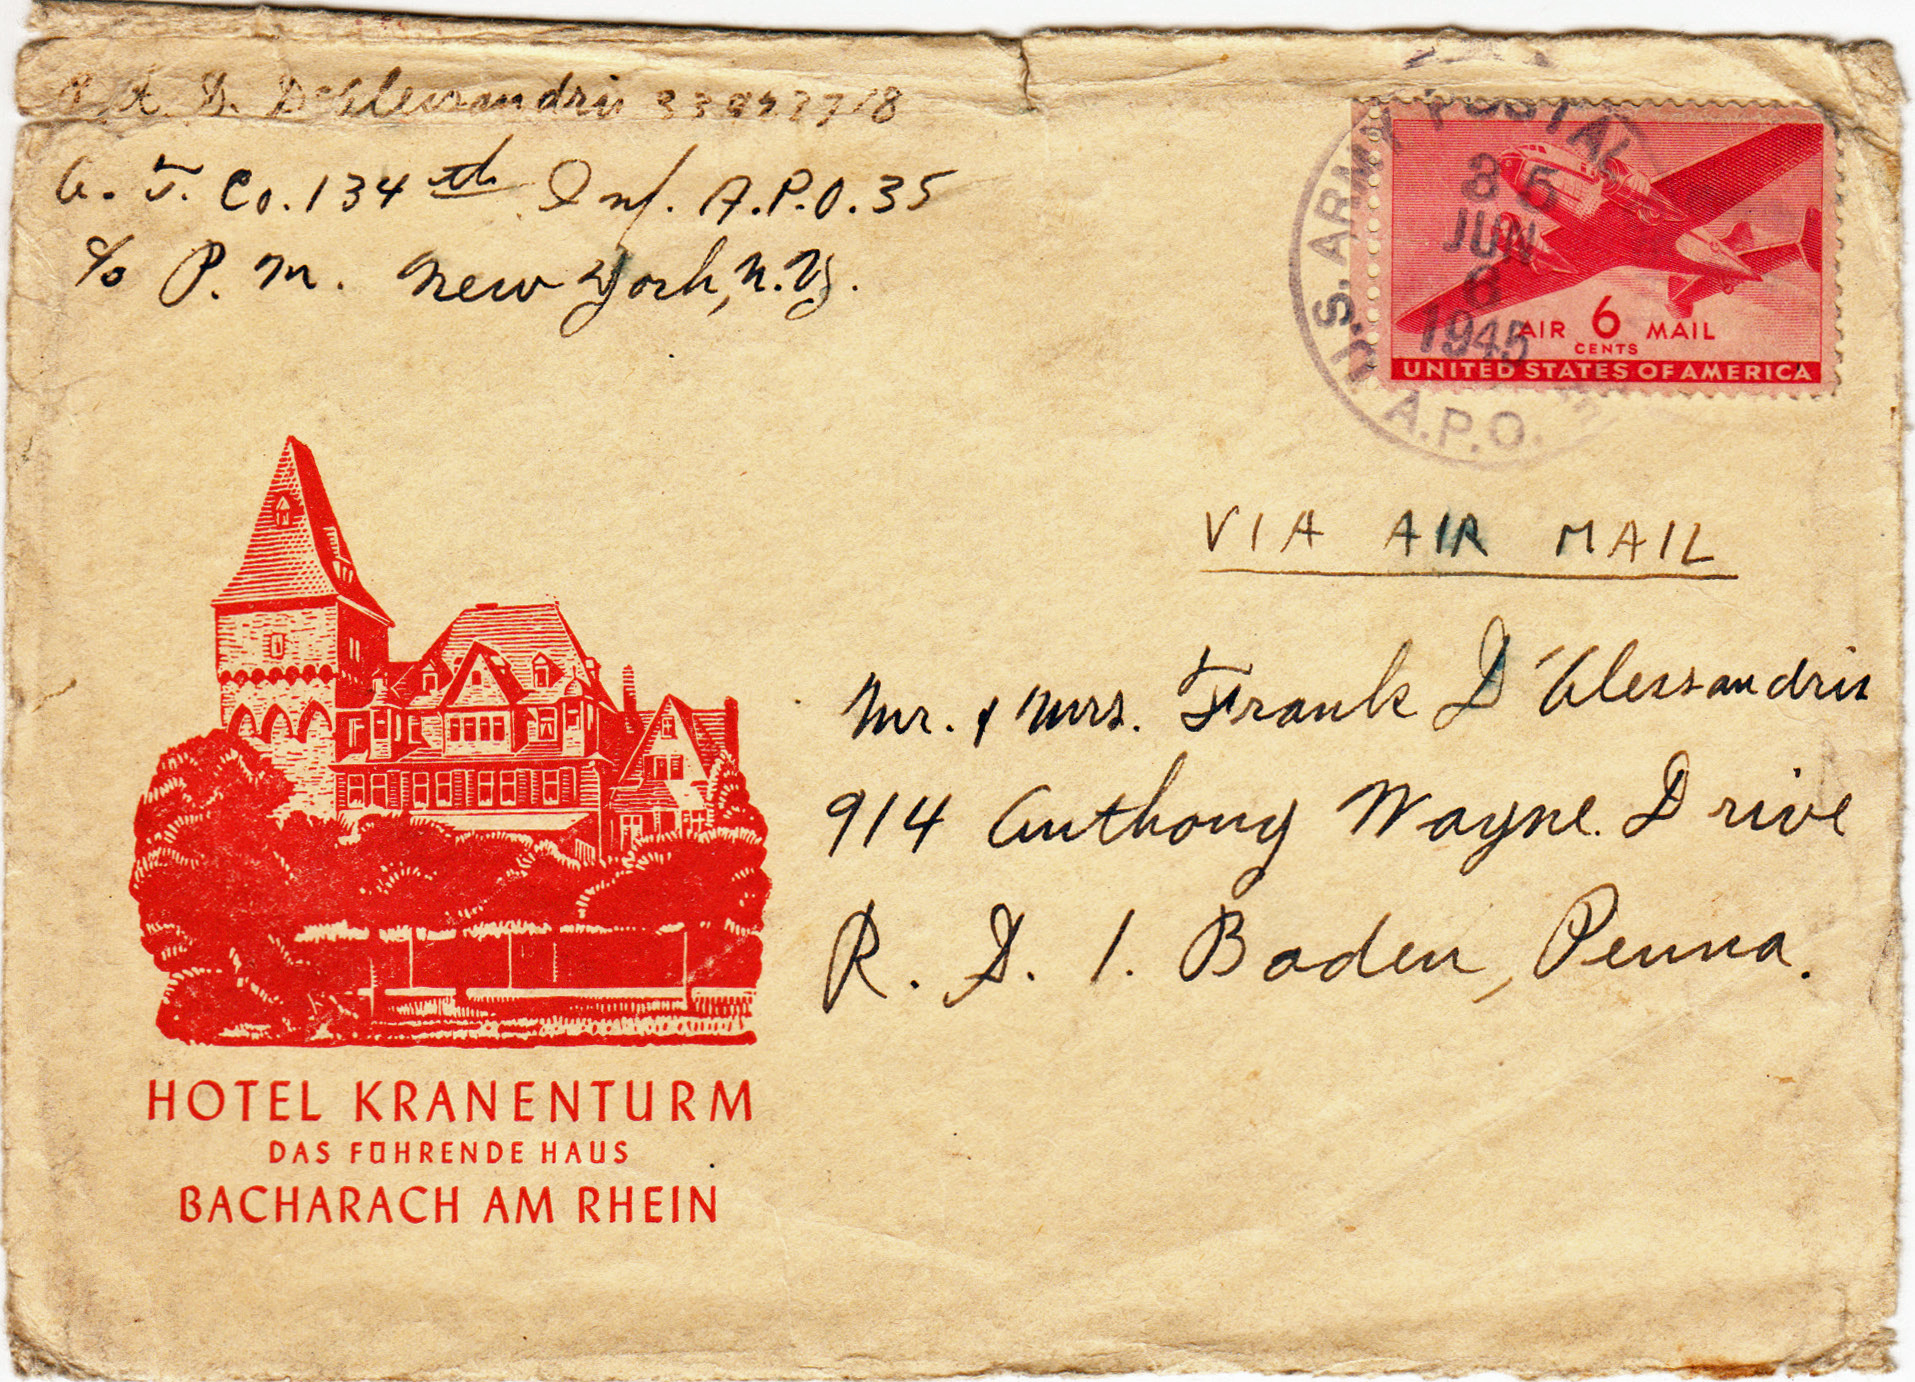 D. D'Alessandris
A. T. Co. 134th Inf. A.P.O. 35
c/o P. M. New York, N.Y.
U.S. ARMY POSTAL
JUN
6
1945
A.P.O.
AIR 6 MAIL
CENTS
UNITED STATES OF AMERICA
VIA AIR MAIL
Mr. & Mrs. Frank D'Alessandris
914 Anthony Wayne Drive
R. D. 1. Baden, Penna.
HOTEL KRANENTURM
DAS FÜHRENDE HAUS
BACHARACH AM RHEIN